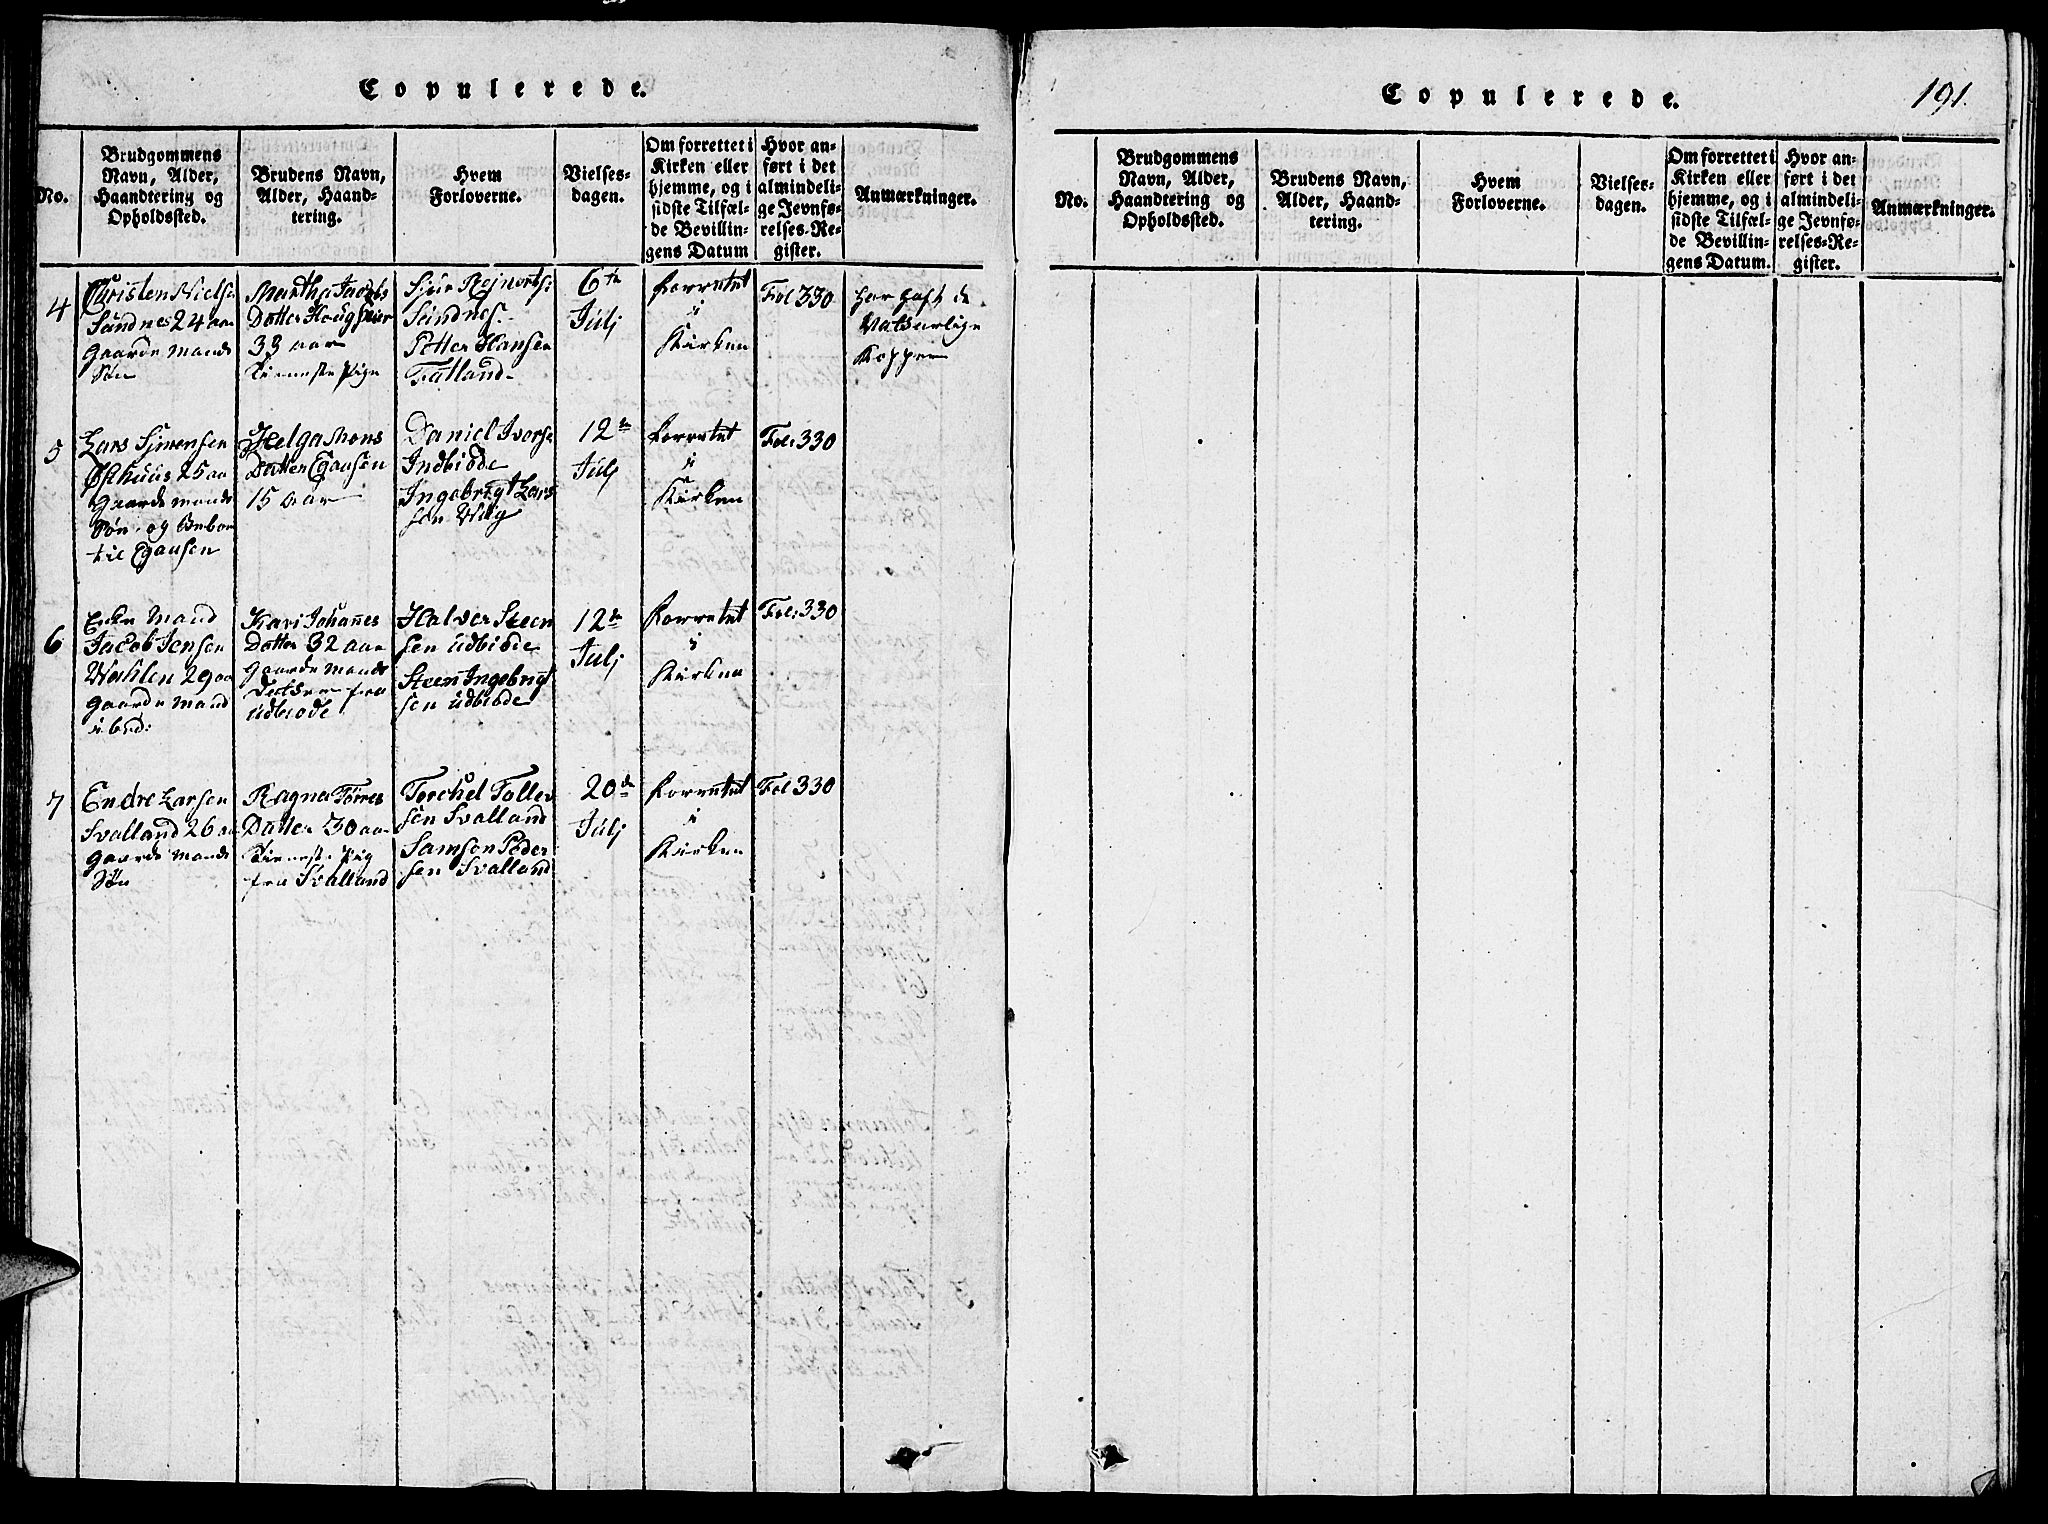 Copulerede.
No.
Brudgommens
Navn, Alder,
Haandtering og
Opholdssted.
Brudens Navn,
Alder, Haand-
tering.
Hvem
Forloverne.
Vielses-
dagen.
Om forrettet i
Kirken eller
hjemme, og i
sidste Tilfæl-
de Bevillin-
gens Datum
Hvor an-
ført i det
almindeli-
ge Jevnfø-
relses-Re-
gister.
Anmærkninger.
4
Christen Niels
Sundnes 24 aar
Gaardemands
Søn
Martha Jacobs
Datter Hougseier
33 aar
Tieneste Pige
Sjur Rejnerts
Sundnes
Petter Hansen
Fatland
6te
Julj
forretet
i
Kirken
Fol 330
har haft de
Naturlige
Kopper
5
Lars Sjursen
Østhuus 25 aar
Gaardemands
Søn og Beboer
til Egausen
Helga Mons
Datter Egausen
15 aar
Daniel Ivers
Indbiøde
Ingebrigt Lars
sen Wiig
12te
Julj
forretet
i
Kirken
Fol: 330
6
Enke Mand
Jacob Jensen
Wahlen 29 aar
Gaarde Mand
ibid:
Kari Johannes
Datter 32 aar
Gaardemands
Datter fra
Udbiøde
Halver Steen
sen Udbiøde
Steen Ingebrigt
sen Udbiøde
12te
Julj
forretet
i
Kirken
Fol: 330
7
Endre Larsen
Svalland 26 aar
Gaardemands
Søn
Ragna Tørres
Datter 30 aar
Tieneste Pige
fra Svalland
Torchel Tollev
sen Svalland
Samson Peder
sen Svalland
20de
Julj
forretet
i
Kirken
Fol 330
Copulerede.
191.
No.
Brudgommens
Navn, Alder,
Haandtering og
Opholdssted.
Brudens Navn,
Alder, Haand-
tering.
Hvem
Forloverne.
Vielses-
dagen.
Om forrettet i
Kirken eller
hjemme, og i
sidste Tilfæl-
de Bevillin-
gens Datum.
Hvor an-
ført i det
almindeli-
ge Jevnfø-
relses-Re-
gister.
Anmærkninger.